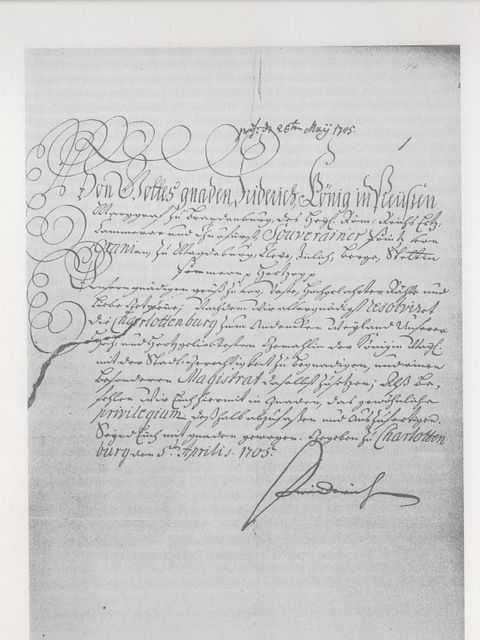 26ten Maÿ 1705.
Von Gottes gnaden, Friderich, König in Preußen
Marggraf zu Brandenburg, des Heyl. Röm: Reichs Ertz
Cammerer und Churfürst, Souverainer Printz von
Oranien, zu Magdeburg, Cleve, Jülich, Berge, Stettin
Pommern p Hertzog p
Unsern gnädigen gruß zuvor, Veste, Hochgelahrter Räthe und
liebe getreue; Nachdem wir allergnädigst resolviret
die Charlottenburg zum Andencken Weyland Unserer
Hoch und Hertzgeliebtesten Gemahlin der Königin Mayt.
mit der Stadt-Gerechtigkeit zu begnadigen, und einen
besonderen Magistrat daselbst zusetzen; Alß be-
fehlen wir Euch hiermit in Gnaden, das gewöhnliche
privilegium deßhalb abzufaßen und außzufertigen.
Seynd Euch mit gnaden gewogen. Gegeben zu Charlotten
burg den 5. Aprilis. 1705.
Friderich